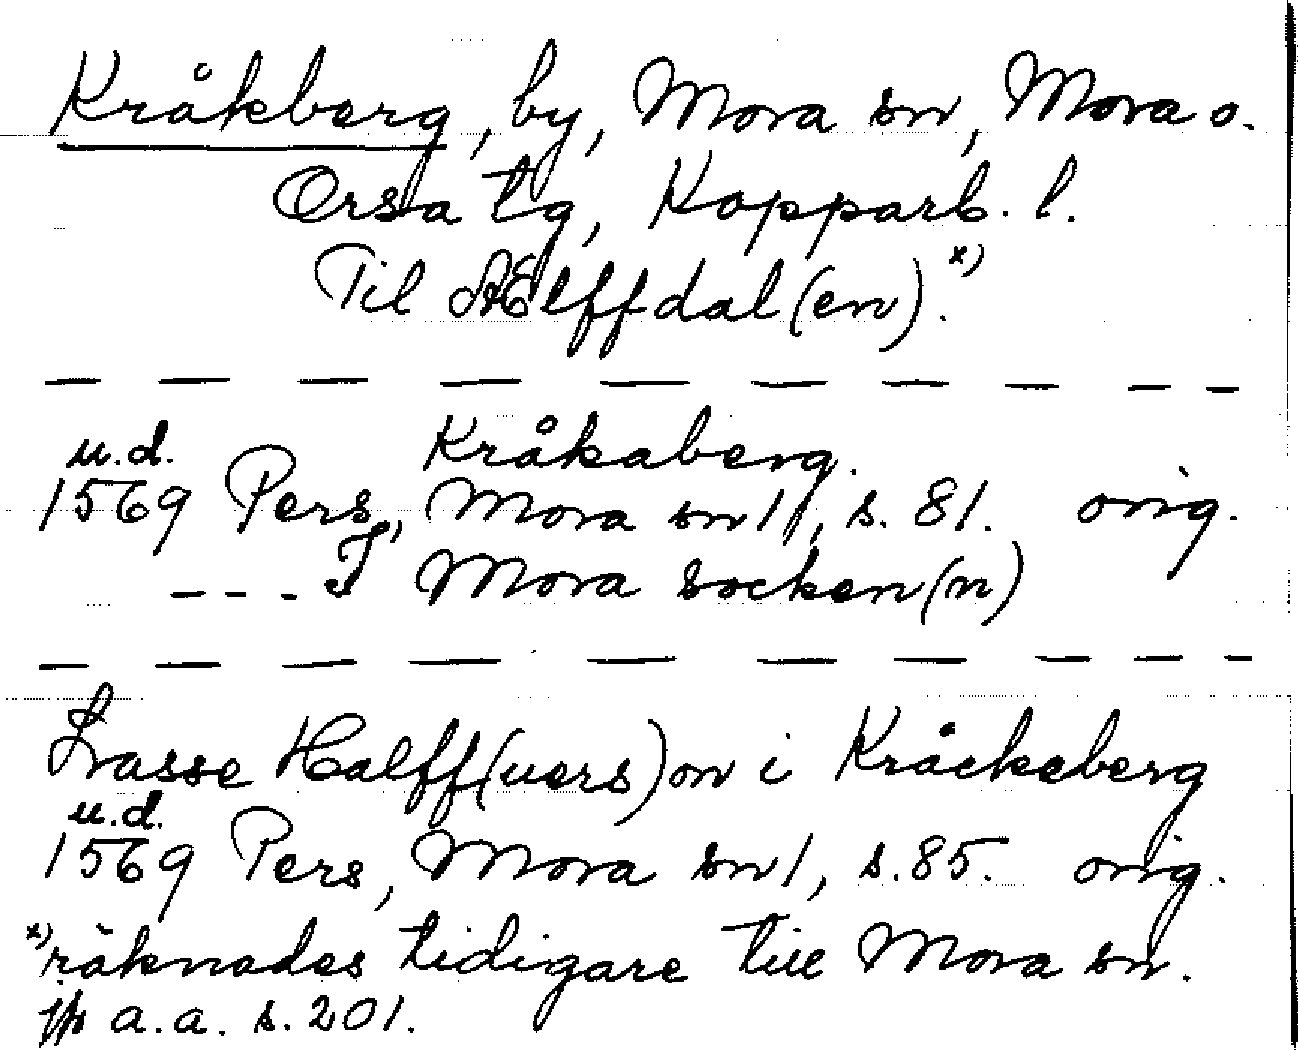 Kråkberg, by, Mora sn, Mora o.
Orsa tg, Kopparb. l.
Til Ælffdal(en).x)
Kråkaberg.
u.d.
1569 Pers, Mora sn 1, s. 81. orig.
- - - I Mora socken(n)
Lasse Halff(uers)on i Kråckeberg
u.d.
1569 Pers, Mora sn 1, s. 85. orig.
x) räknades tidigare till Mora sn.
jfr a.a. s. 201.